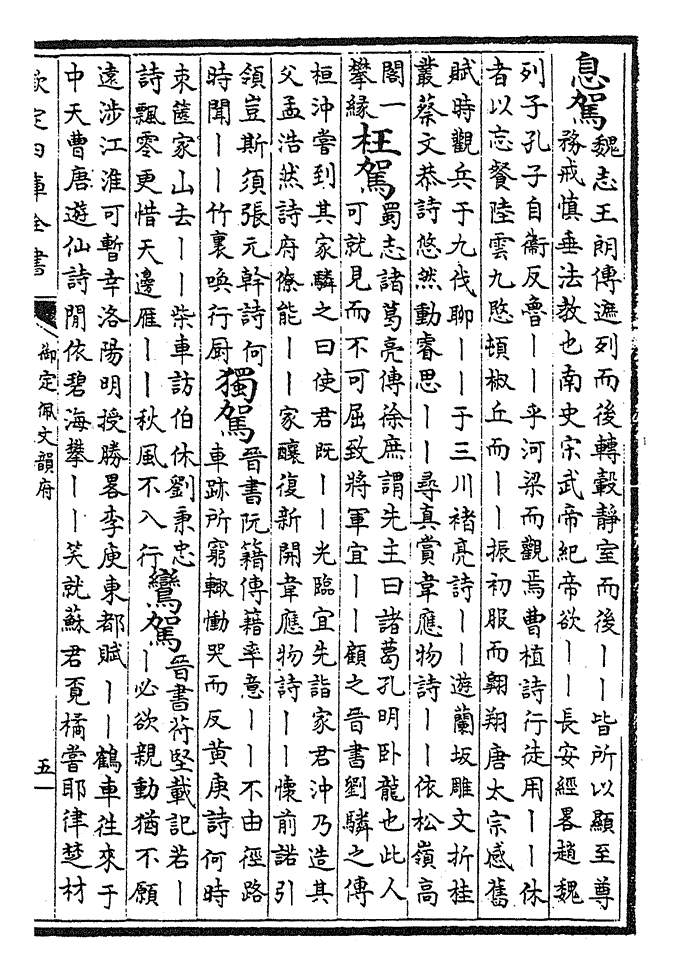 息駕
魏志王朗傳遮列而後轉轂靜室而後丨丨皆所以顯至尊
務戒慎垂法教也南史宋武帝紀帝欲丨丨長安經畧趙魏
列子孔子自衞反魯丨丨乎河梁而觀焉曹植詩行徒用丨丨休
者以忘餐陸雲九愍頓椒丘而丨丨振初服而翺翔唐太宗感舊
賦時觀兵于九伐聊丨丨于三川褚亮詩丨丨遊蘭坂雕文折桂
叢蔡文恭詩悠然動睿思丨丨尋真賞韋應物詩丨丨依松嶺高
閣一
攀緣
枉駕
蜀志諸葛亮傳徐庶謂先主曰諸葛孔明卧龍也此人
可就見而不可屈致將軍宜丨丨顧之晉書劉驎之傳
桓沖嘗到其家驎之曰使君既丨丨光臨宜先詣家君沖乃造其
父孟浩然詩府僚能丨丨家釀復新開韋應物詩丨丨懷前諾引
領豈斯須張元幹詩何
時聞丨丨竹裏喚行厨
獨駕
晉書阮籍傳籍率意丨丨不由徑路
車跡所窮輙慟哭而反黄庚詩何時
束篋家山去丨丨柴車訪伯休劉秉忠
詩飄零更惜天邊雁丨丨秋風不入行
鸞駕
晉書苻堅載記若丨
丨必欲親動猶不願
遠涉江淮可暫幸洛陽明授勝畧李庾東都賦丨丨鶴車徃來于
中天曹唐遊仙詩閒依碧海攀丨丨笑就蘇君覔橘嘗耶律楚材
欽定四庫全書
御定佩文韻府
五一